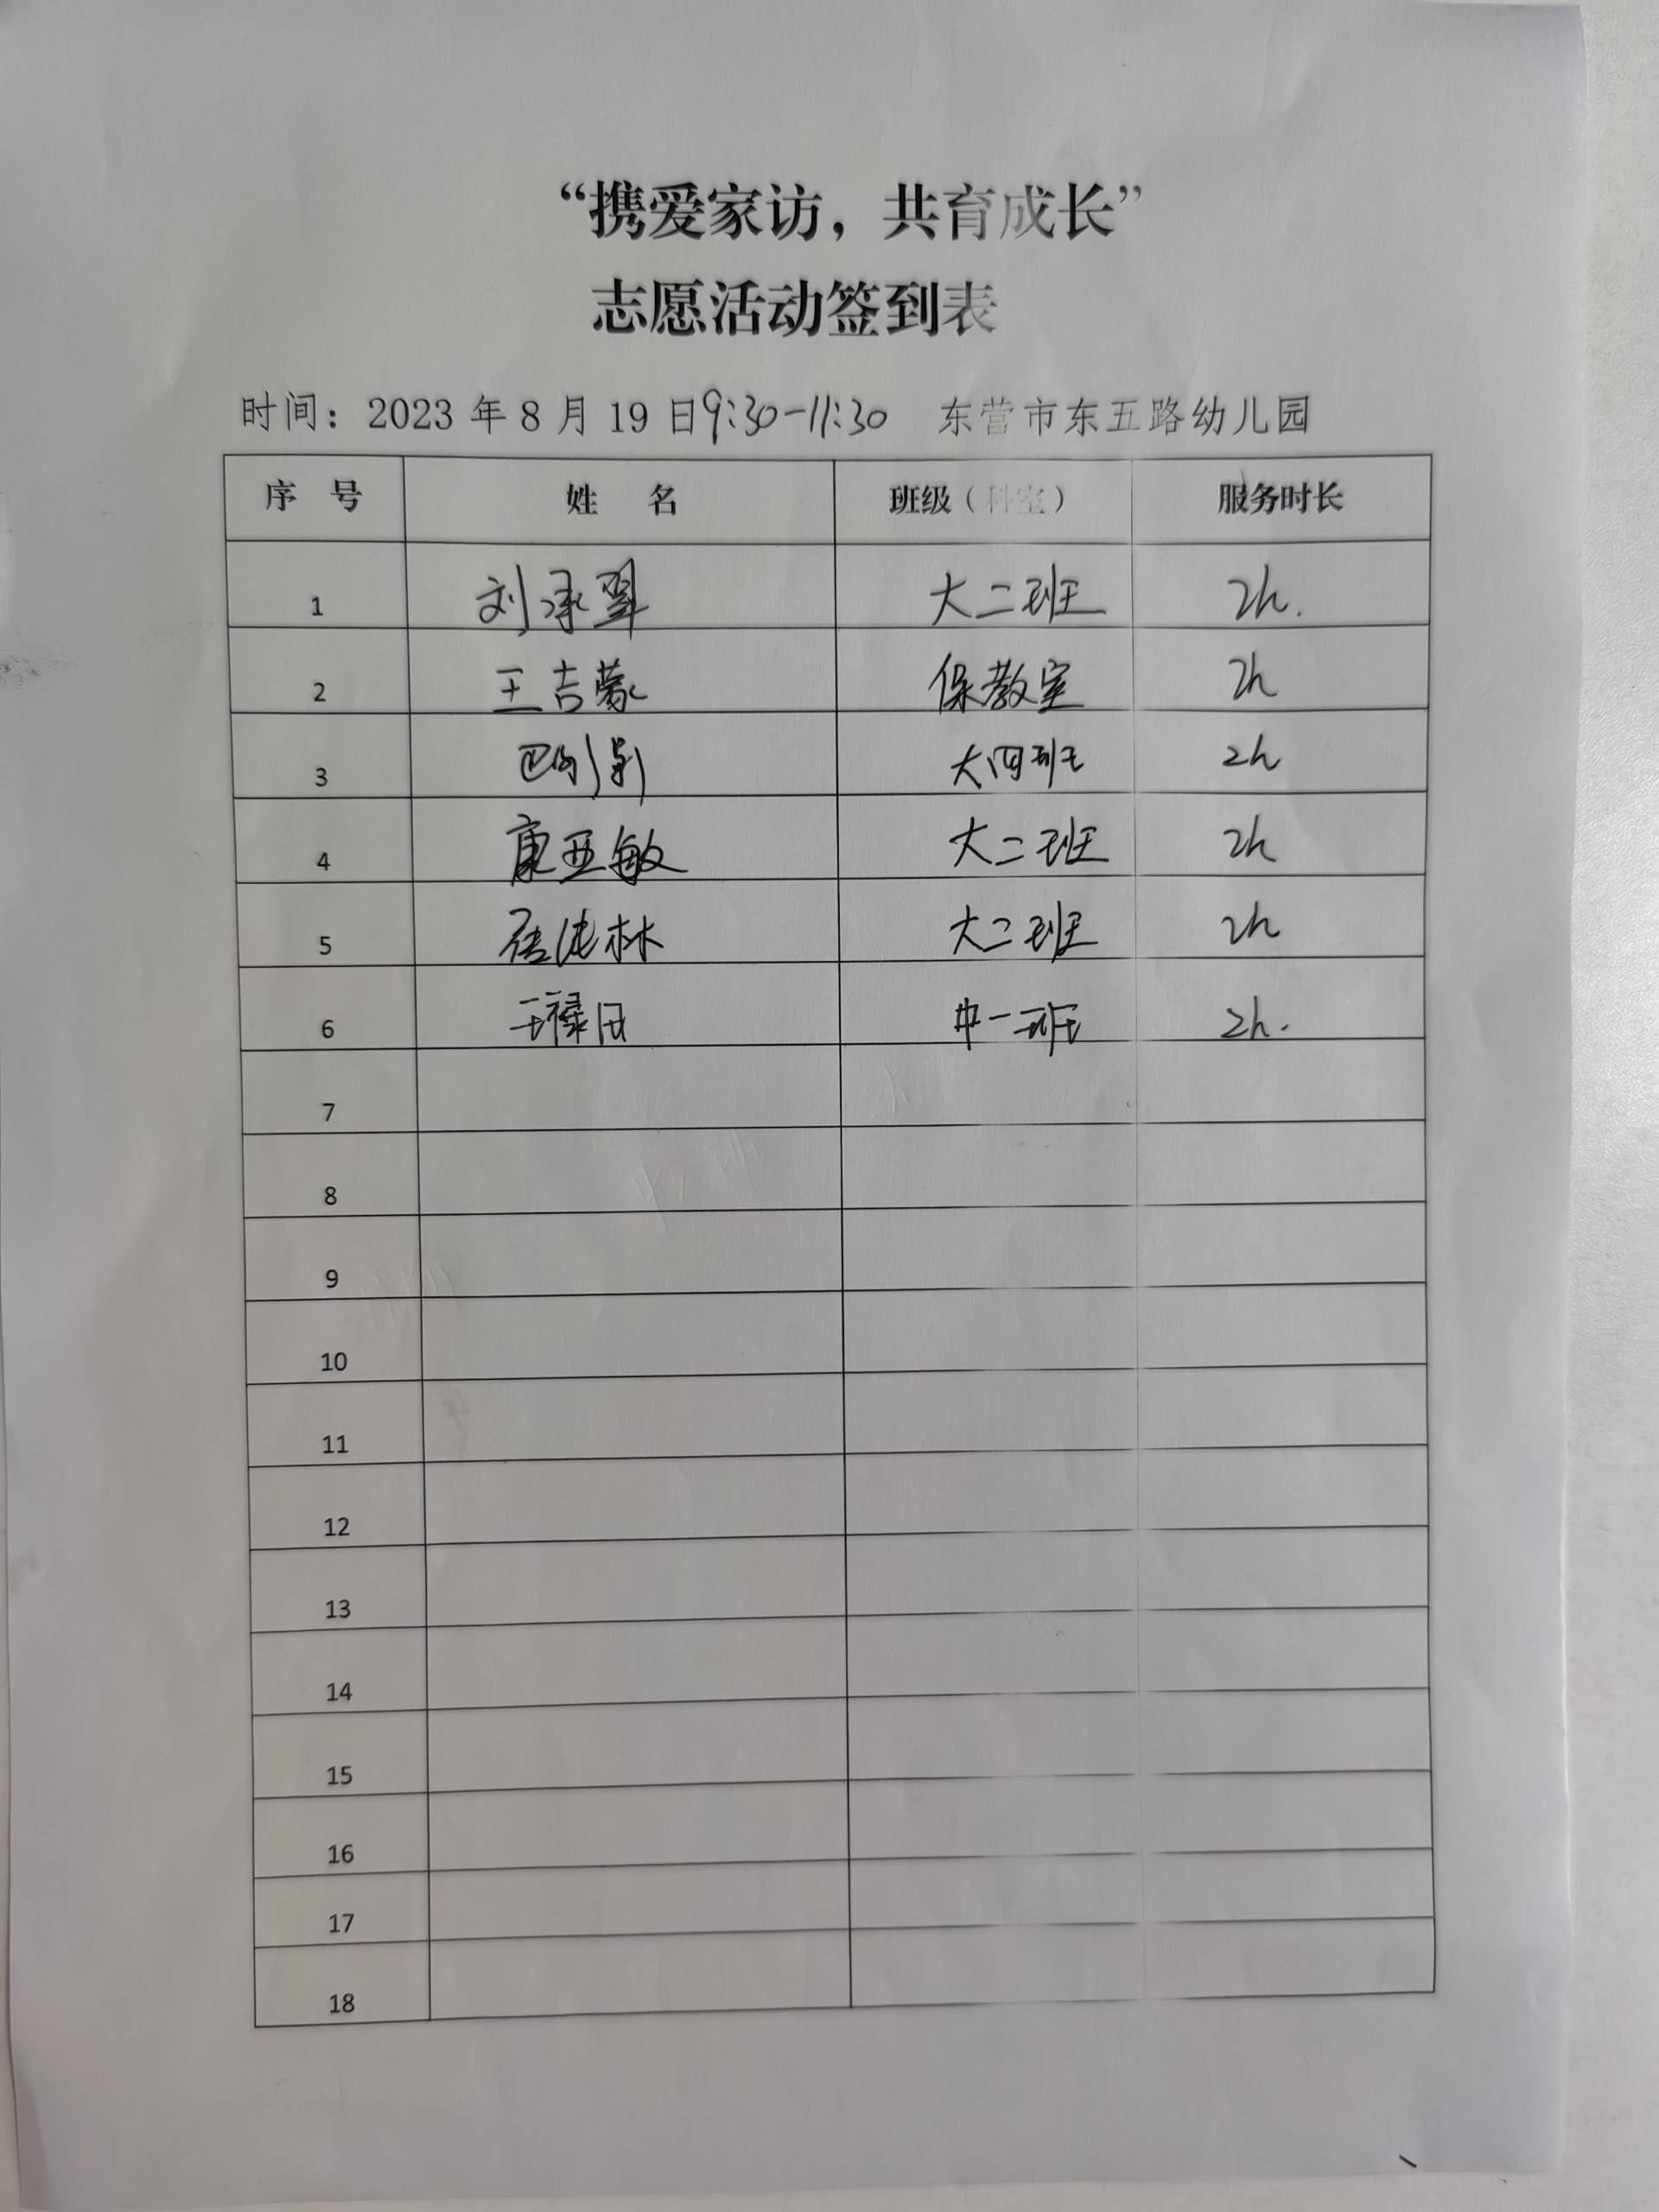 “携爱家访，共育成长”
志愿活动签到表
时间：2023年8月19日9:30-11:30 东营市东五路幼儿园
序 号 姓 名 班级（科室） 服务时长
1 刘承翠 大二班 2h.
2 王吉蒙 保教室 2h
3 大四班 2h
4 康亚敏 大二班 2h
5 大二班 2h
6 中一班 2h.
7
8
9
10
11
12
13
14
15
16
17
18